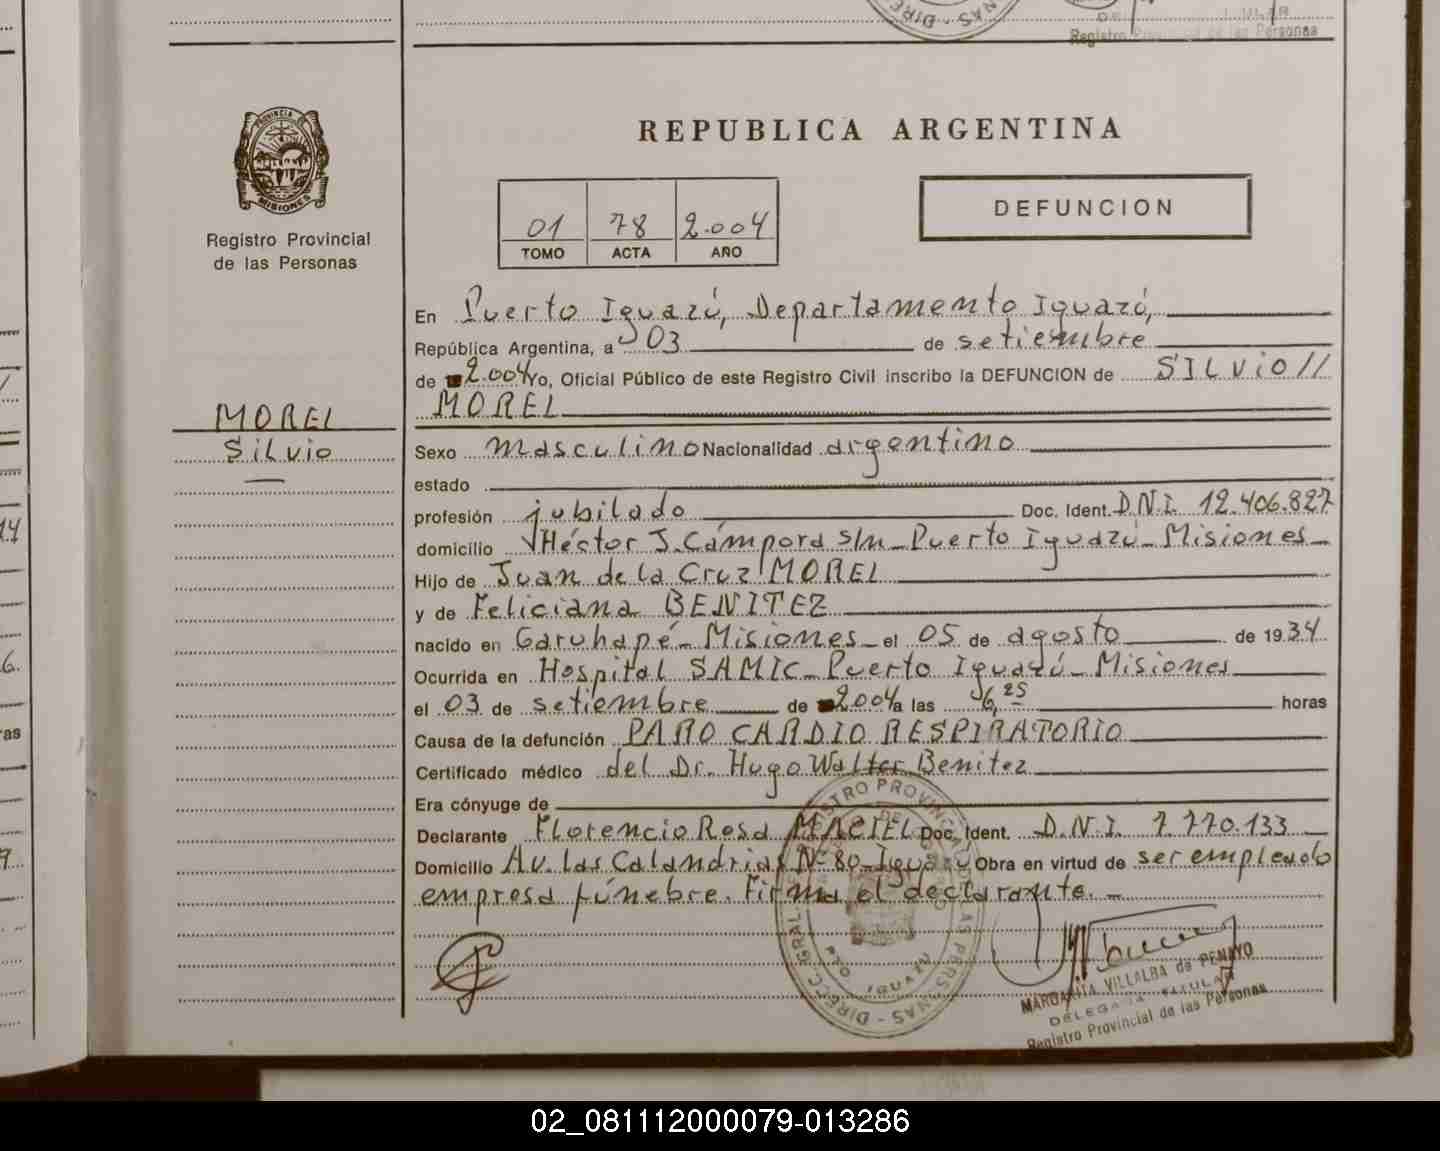 Registro Provincial de las Personas
REPUBLICA ARGENTINA
PROVINCIA DE
MISIONES
Registro Provincial
de las Personas
01 78 2.004
TOMO ACTA AÑO
DEFUNCION
En Puerto Iguazú, Departamento Iguazú,
República Argentina, a 03 de setiembre
de 2.004 Yo, Oficial Público de este Registro Civil inscribo la DEFUNCION de SILVIO //
MOREL
MOREL
Silvio
Sexo masculino Nacionalidad argentino
estado
profesión jubilado Doc. Ident. D.N.I. 12.406.827
domicilio Héctor J. Cámpora s/n - Puerto Iguazú - Misiones
Hijo de Juan de la Cruz MOREL
y de Feliciana BENITEZ
nacido en Garuhapé - Misiones - el 05 de agosto de 1934
Ocurrida en Hospital SAMIC - Puerto Iguazú - Misiones
el 03 de setiembre de 2004 a las 6,25 horas
Causa de la defunción PARO CARDIO RESPIRATORIO
Certificado médico del Dr. Hugo Walter Benitez
Era cónyuge de
Declarante Florencio Rosa MACIEL Doc. Ident. D.N.I. 7.770.133
Domicilio Av. Las Calandrias Nº 80 - Iguazú Obra en virtud de ser empleado
empresa fúnebre. Firma el declarante. -
MARGARITA VILLALBA de PENAYO
DELEGADA TITULAR
Registro Provincial de las Personas
02_081112000079-013286